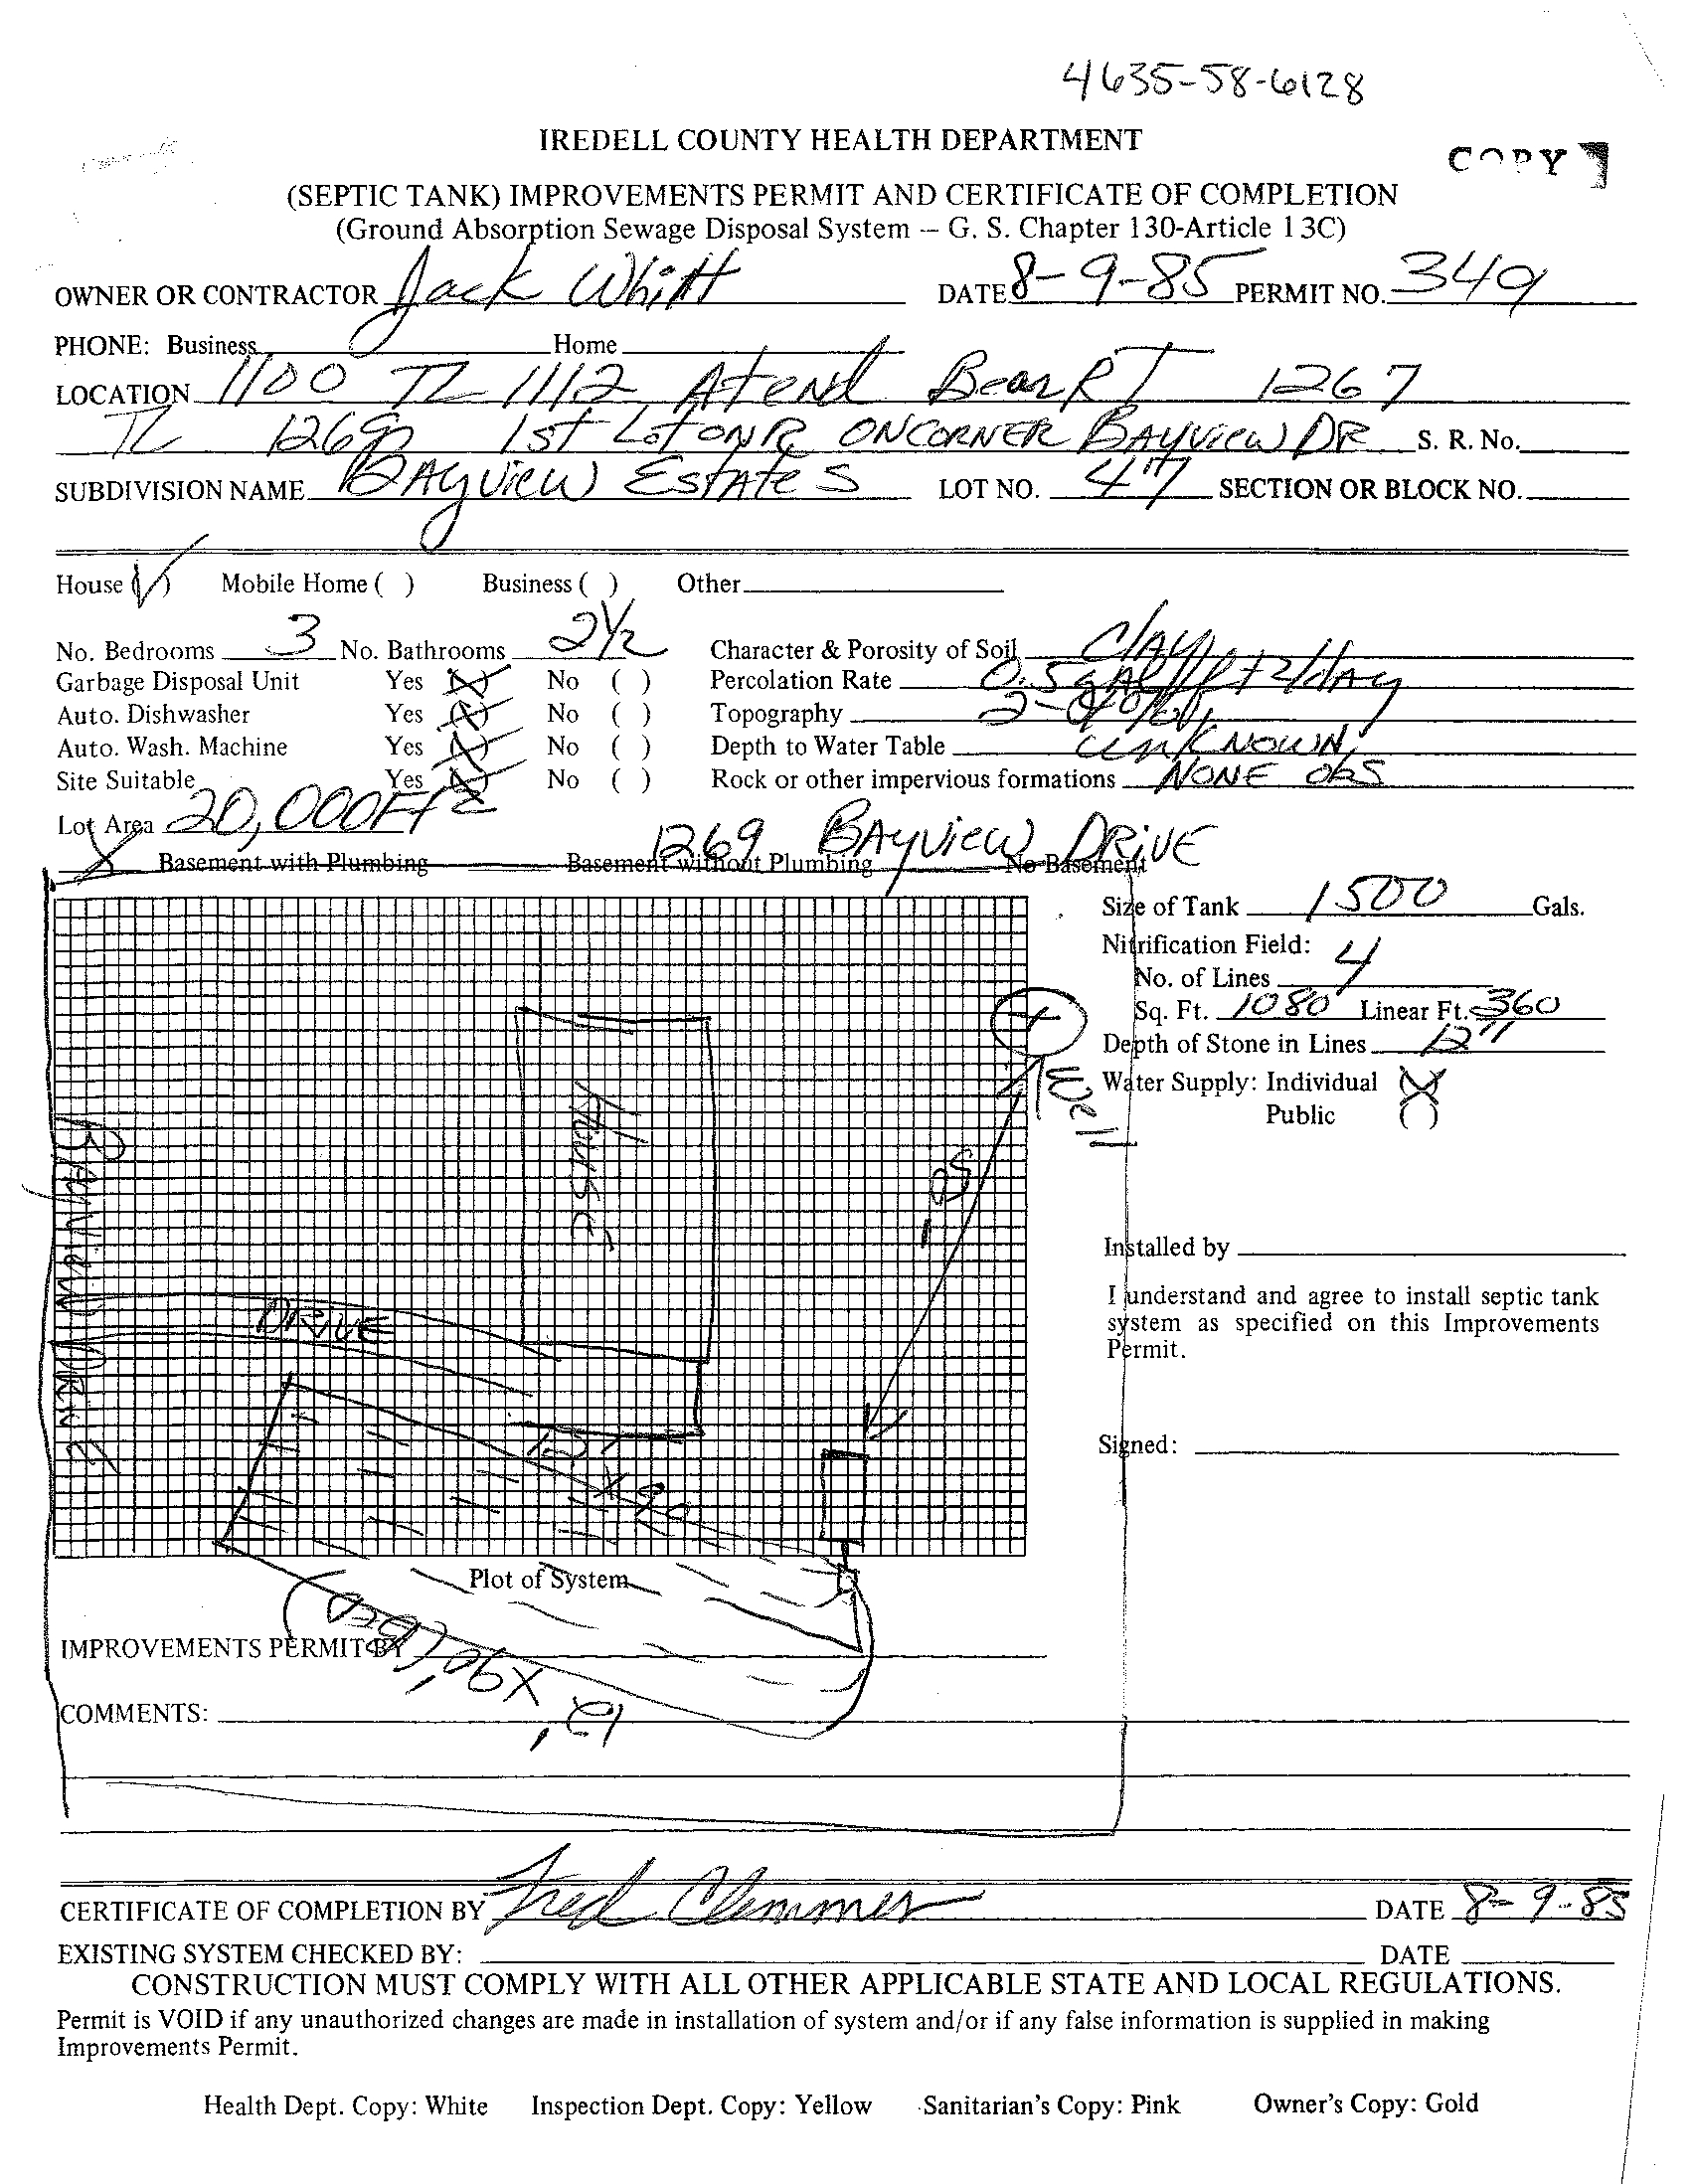 4635-58-6128
IREDELL COUNTY HEALTH DEPARTMENT
COPY
(SEPTIC TANK) IMPROVEMENTS PERMIT AND CERTIFICATE OF COMPLETION
(Ground Absorption Sewage Disposal System – G. S. Chapter 130-Article 13C)
OWNER OR CONTRACTOR Jack Whitt DATE 8-9-85 PERMIT NO. 349
PHONE: Business Home
LOCATION 1100 TL 1112 At end Bear RT 1267
TL 1269 1st Lot ON R ON CORNER BAYVIEW DR S. R. No.
SUBDIVISION NAME BAYVIEW EstAtes LOT NO. 47 SECTION OR BLOCK NO.
House (√) Mobile Home ( ) Business ( ) Other
No. Bedrooms 3 No. Bathrooms 2½ Character & Porosity of Soil CLAY
Garbage Disposal Unit Yes (X) No ( ) Percolation Rate 0.5 gAL/ft2/dAy
Auto. Dishwasher Yes (X) No ( ) Topography 2-
Auto. Wash. Machine Yes (X) No ( ) Depth to Water Table unKNOWN
Site Suitable Yes (X) No ( ) Rock or other impervious formations NONE OBS
Lot Area 20,000 Ft2
1269 BAYVIEW DRIVE
X Basement with Plumbing Basement without Plumbing No Basement
Size of Tank 1500 Gals.
Nitrification Field:
No. of Lines 4
Sq. Ft. 1080 Linear Ft. 360
Depth of Stone in Lines 12"
Water Supply: Individual (X)
Public ( )
Well
House
BAYVIEW DRIVE
DRIVE
12' X 90
Installed by
I understand and agree to install septic tank
system as specified on this Improvements
Permit.
Signed:
Plot of System
12' X 90' (Bed)
IMPROVEMENTS PERMIT BY
COMMENTS:
CERTIFICATE OF COMPLETION BY Fred Clemmer DATE 8-9-85
EXISTING SYSTEM CHECKED BY: DATE
CONSTRUCTION MUST COMPLY WITH ALL OTHER APPLICABLE STATE AND LOCAL REGULATIONS.
Permit is VOID if any unauthorized changes are made in installation of system and/or if any false information is supplied in making
Improvements Permit.
Health Dept. Copy: White Inspection Dept. Copy: Yellow Sanitarian's Copy: Pink Owner's Copy: Gold